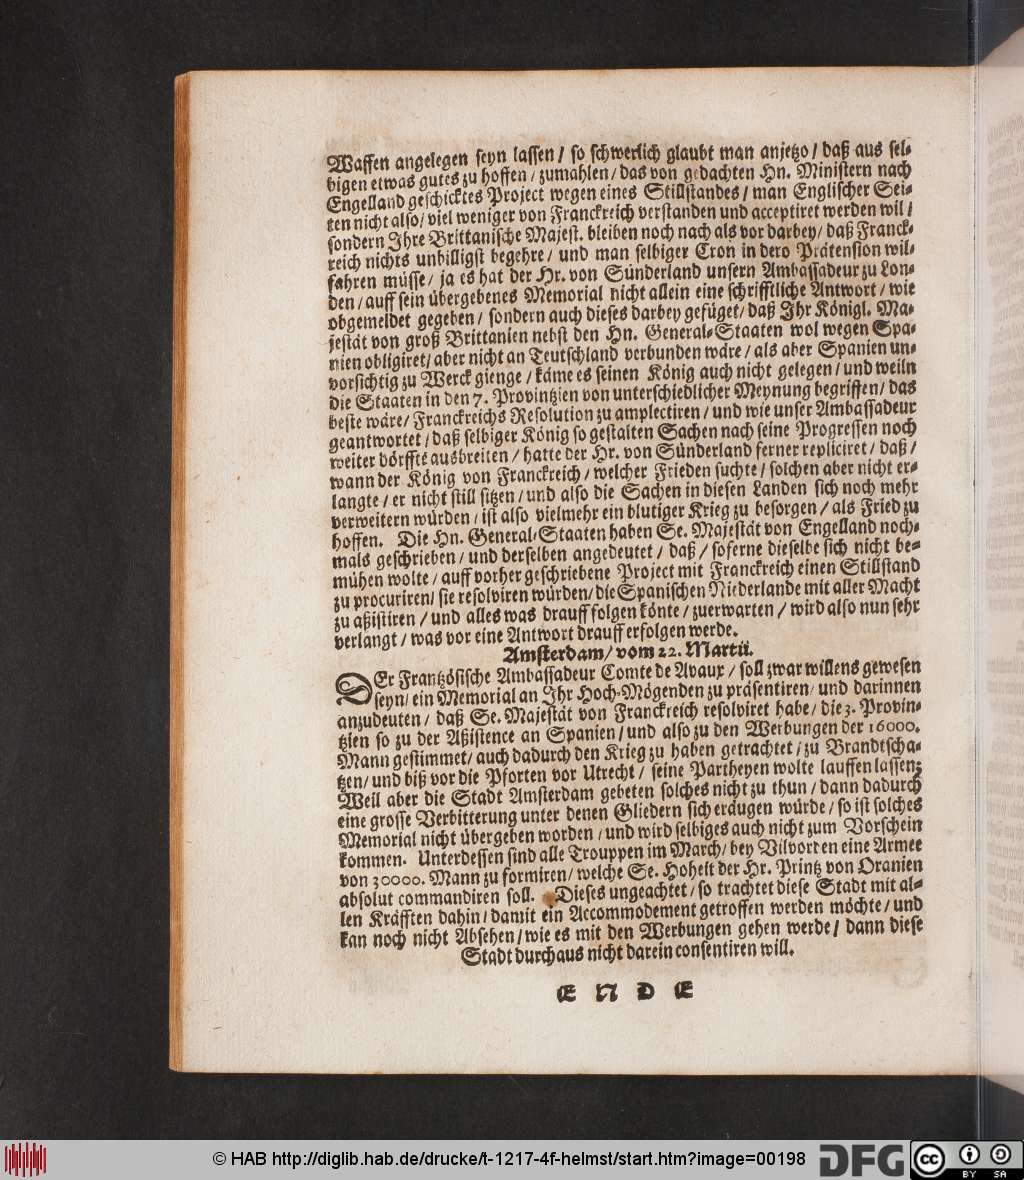 Waffen angelegen seyn lassen / so schwerlich glaubt man anjetzo / daß aus sel-
bigen etwas gutes zu hoffen / zumahlen / das von gedachten Hn. Ministern nach
Engelland geschicktes Project wegen eines Stillstandes / man Englischer Sei-
ten nicht also / viel weniger von Franckreich verstanden und acceptiret werden wil /
sondern Ihre Brittanische Majest. bleiben noch nach als vor darbey / daß Franck-
reich nichts unbilligst begehre / und man selbiger Cron in dero Prätension wil-
fahren müsse / ja es hat der Hr. von Sünderland unsern Ambassadeur zu Lon-
den / auff sein übergebenes Memorial nicht allein eine schrifftliche Antwort / wie
obgemeldet gegeben / sondern auch dieses darbey gefüget / daß Ihr Königl. Ma-
jestät von groß Brittanien nebst den Hn. General-Staaten wol wegen Spa-
nien obligiret / aber nicht an Teutschland verbunden wäre / als aber Spanien un-
vorsichtig zu Werck gienge / käme es seinen König auch nicht gelegen / und weiln
die Staaten in den 7. Provintzien von unterschiedlicher Meynung begriffen / das
beste wäre / Franckreichs Resolution zu amplectiren / und wie unser Ambassadeur
geantwortet / daß selbiger König so gestalten Sachen nach seine Progressen noch
weiter dörffte ausbreiten / hatte der Hr. von Sünderland ferner repliciret / daß /
wann der König von Franckreich / welcher Frieden suchte / solchen aber nicht er-
langte / er nicht still sitzen / und also die Sachen in diesen Landen sich noch mehr
verweitern würden / ist also vielmehr ein blutiger Krieg zu besorgen / als Fried zu
hoffen. Die Hn. General-Staaten haben Se. Majestät von Engelland noch-
mals geschrieben / und derselben angedeutet / daß / soferne dieselbe sich nicht be-
mühen wolte / auff vorher geschriebene Project mit Franckreich einen Stillstand
zu procuriren / sie resolviren würden / die Spanischen Niederlande mit aller Macht
zu aßistiren / und alles was drauff folgen könte / zuerwarten / wird also nun sehr
verlangt / was vor eine Antwort drauff erfolgen werde.
Amsterdam / vom 22. Martii.
DEr Frantzösische Ambassadeur Comte de Avaux / soll zwar willens gewesen
seyn / ein Memorial an Ihr Hoch-Mögenden zu präsentiren / und darinnen
anzudeuten / daß Se. Majestät von Franckreich resolviret habe / die 3. Provin-
tzien so zu der Aßistence an Spanien / und also zu den Werbungen der 16000.
Mann gestimmet / auch dadurch den Krieg zu haben getrachtet / zu Brandtscha-
tzen / und biß vor die Pforten vor Utrecht / seine Partheyen wolte lauffen lassen;
Weil aber die Stadt Amsterdam gebeten solches nicht zu thun / dann dadurch
eine grosse Verbitterung unter denen Gliedern sich eräugen würde / so ist solches
Memorial nicht übergeben worden / und wird selbiges auch nicht zum Vorschein
kommen. Unterdessen sind alle Trouppen im March / bey Vilvorden eine Armee
von 30000. Mann zu formiren / welche Se. Hoheit der Hr. Printz von Oranien
absolut commandiren soll. Dieses ungeachtet / so trachtet diese Stadt mit al-
len Kräfften dahin / damit ein Accommodement getroffen werden möchte / und
kan noch nicht Absehen / wie es mit den Werbungen gehen werde / dann diese
Stadt durchaus nicht darein consentiren will.
ENDE
© HAB http://diglib.hab.de/drucke/t-1217-4f-helmst/start.htm?image=00198 DFG cc BY SA